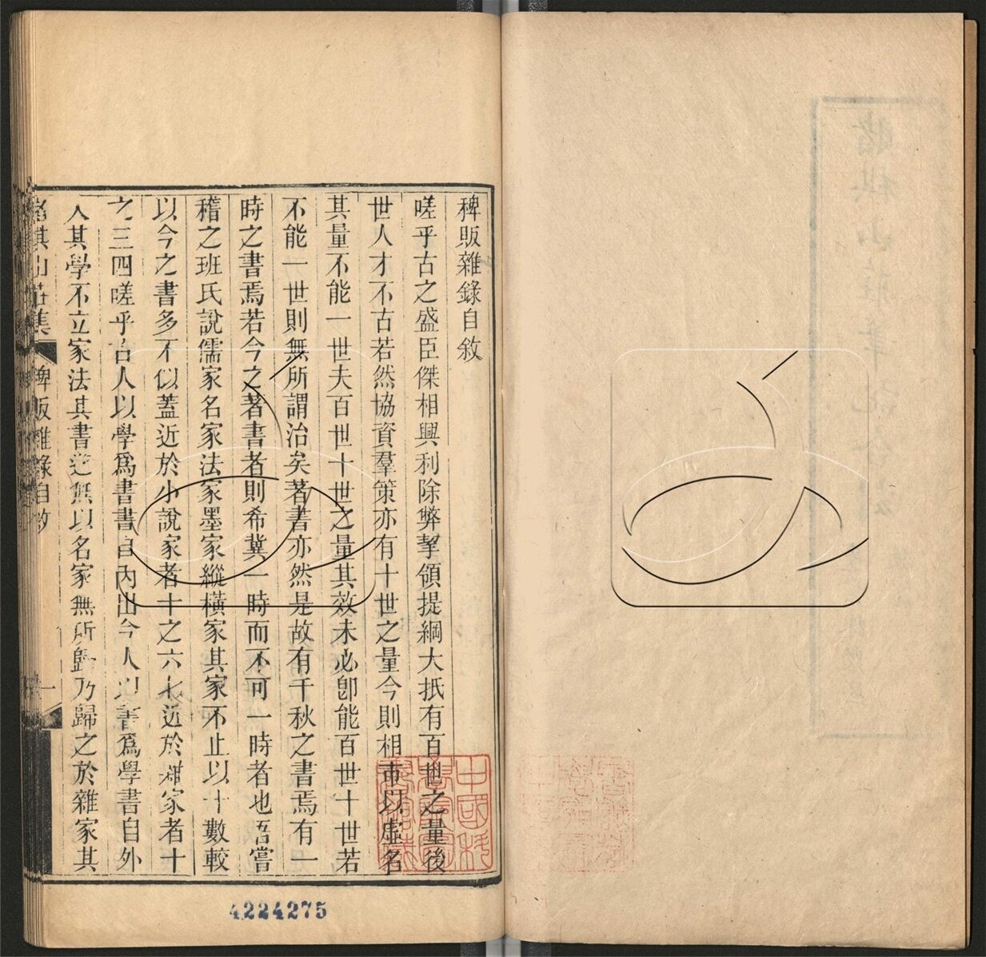 稗販雜錄自敘
嗟乎古之盛臣傑相興利除弊挈領提綱大抵有百世之量後
世人才不古若然協資羣策亦有十世之量今則相市以虛名
其量不能一世夫百世十世之量其效未必卽能百世十世若
不能一世則無所謂治矣著書亦然是故有千秋之書焉有一
時之書焉若今之著書者則希冀一時而不可一時者也吾嘗
稽之班氏說儒家名家法家墨家縱橫家其家不止以十數較
以今之書多不似蓋近於小說家者十之六七近於雜家者十
之三四嗟乎古人以學爲書書自內出今人以書爲學書自外
入其學不立家法其書遂無以名家無所歸乃歸之於雜家其
賭棋山莊集
稗販雜錄自敘
一
4224275